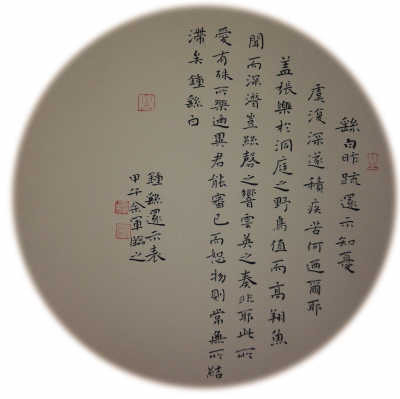 繇白昨疏還示知憂
虞復深遂積疾苦何迺爾耶
蓋張樂於洞庭之野鳥值而高翔魚
聞而深潛豈絲磬之響雲英之奏非耶此所
愛有殊所樂迺異君能審己而恕物則常無所結
滯矣鍾繇白
鍾繇還示表
甲午余軍臨之